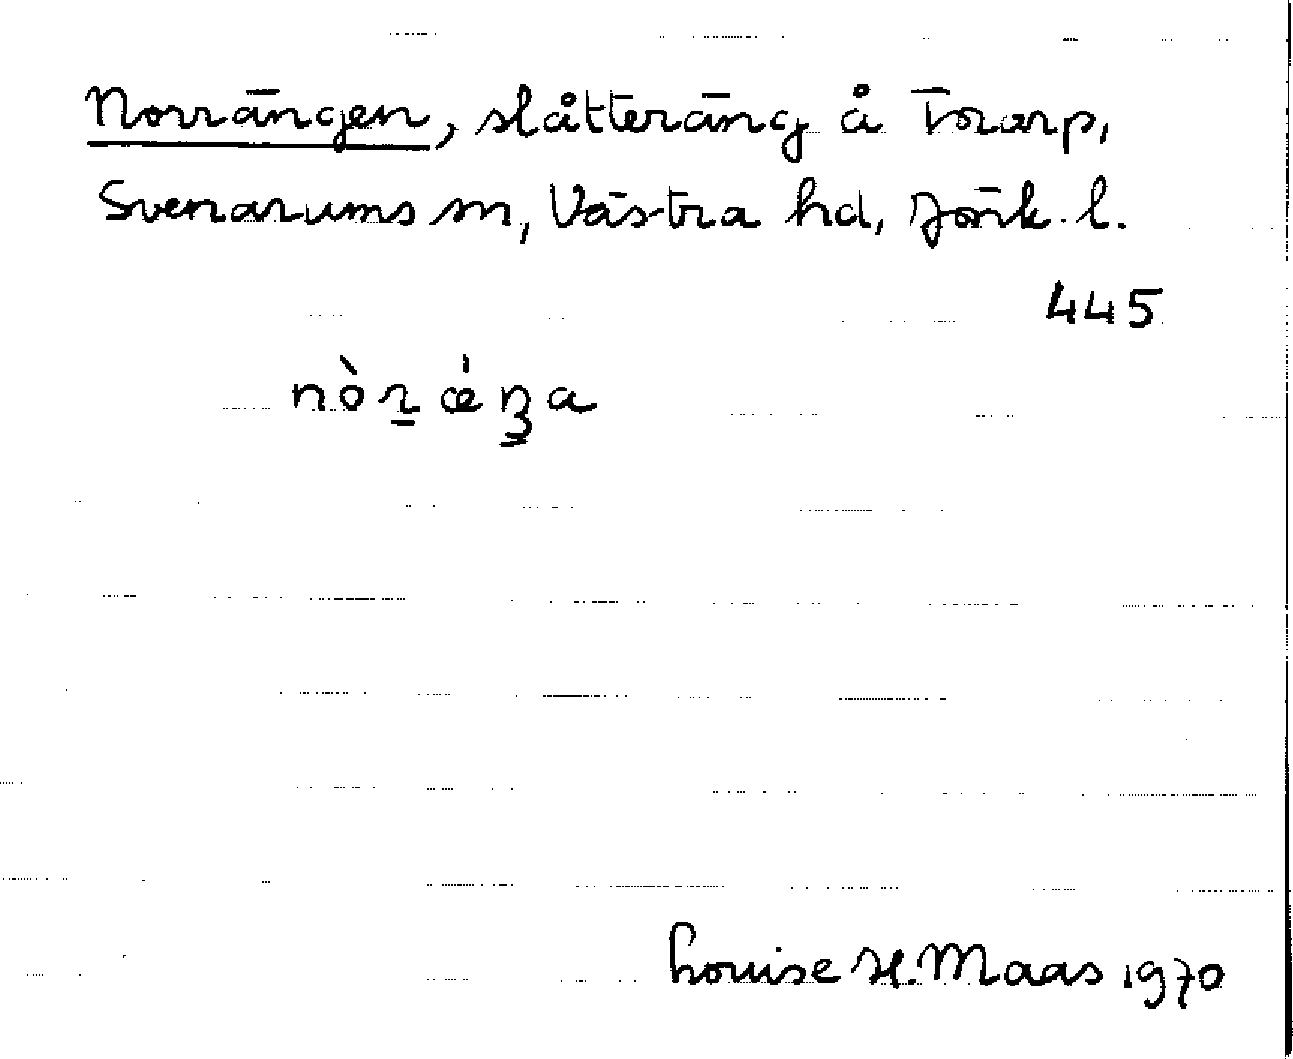 Norrängen, slåtteräng å Torarp,
Svenarums sn, Västra hd, Jönk. l.
445
nòr æ̀ŋa
Louise H. Maas 1970